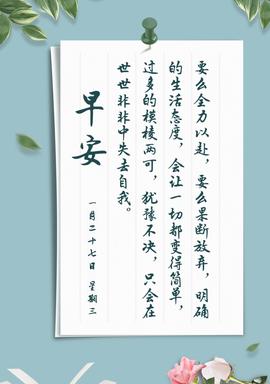 要么全力以赴，要么果断放弃，明确
的生活态度，会让一切都变得简单，
过多的模棱两可，犹豫不决，只会在
世世非非中失去自我。
早安
一月二十七日 星期三